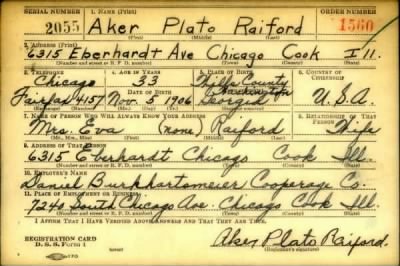 SERIAL NUMBER 1. NAME (Print) ORDER NUMBER
2055 Aker Plato Raiford 1560
(First) (Middle) (Last)
2. ADDRESS (Print)
6315 Eberhardt Ave Chicago Cook Ill.
(Number and street or R. F. D. number) (Town) (County) (State)
3. TELEPHONE 4. AGE IN YEARS 5. PLACE OF BIRTH 6. COUNTRY OF CITIZENSHIP
Chicago 33
DATE OF BIRTH
Fairfax 4157 Nov. 5, 1906 Georgia U.S.A.
7. NAME OF PERSON WHO WILL ALWAYS KNOW YOUR ADDRESS 8. RELATIONSHIP OF THAT PERSON
Mrs. Eva (none) Raiford Wife
(Mr., Mrs., Miss) (First) (Middle) (Last)
9. ADDRESS OF THAT PERSON
6315 Eberhardt Chicago Cook Ill.
(Number and street or R. F. D. number) (Town) (County) (State)
10. EMPLOYER'S NAME
Daniel Burkhartsmeier Cooperage Co.
11. PLACE OF EMPLOYMENT OR BUSINESS
7240 South Chicago Ave. Chicago Cook Ill.
(Number and street or R. F. D. number) (Town) (County) (State)
I AFFIRM THAT I HAVE VERIFIED ABOVE ANSWERS AND THAT THEY ARE TRUE.
REGISTRATION CARD
D. S. S. Form 1 Aker Plato Raiford.
(Registrant's signature)